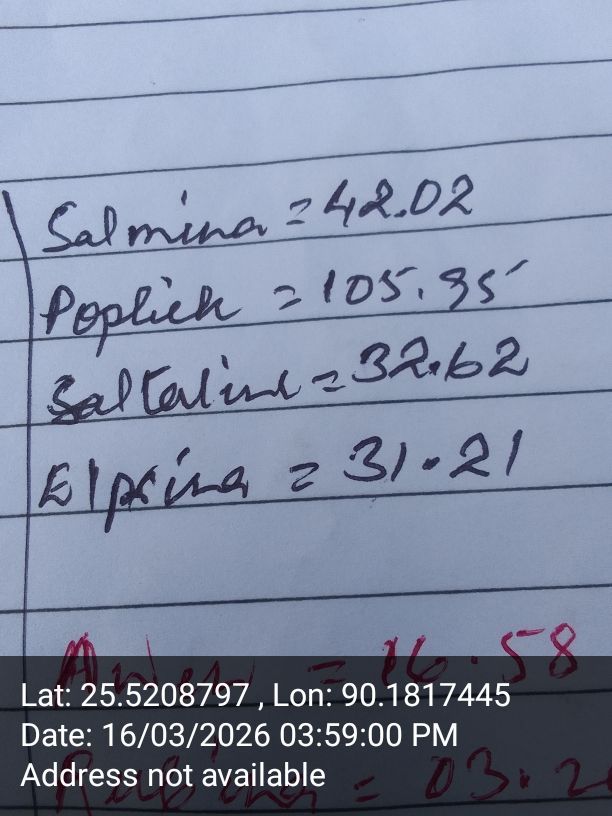 Salmina = 42.02
Poplick = 105.95
Saltaline = 32.62
Elprina = 31.21
= 16.58
Lat: 25.5208797 , Lon: 90.1817445
Date: 16/03/2026 03:59:00 PM
Address not available
= 03.2